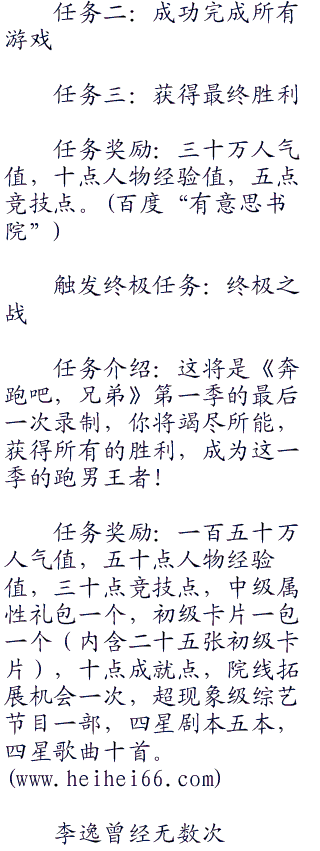 任务二：成功完成所有
游戏
任务三：获得最终胜利
任务奖励：三十万人气
值，十点人物经验值，五点
竞技点。(百度“有意思书
院”)
触发终极任务：终极之
战
任务介绍：这将是《奔
跑吧，兄弟》第一季的最后
一次录制，你将竭尽所能，
获得所有的胜利，成为这一
季的跑男王者！
任务奖励：一百五十万
人气值，五十点人物经验
值，三十点竞技点，中级属
性礼包一个，初级卡片一包
一个（内含二十五张初级卡
片），十点成就点，院线拓
展机会一次，超现象级综艺
节目一部，四星剧本五本，
四星歌曲十首。
(www.heihei66.com)
李逸曾经无数次